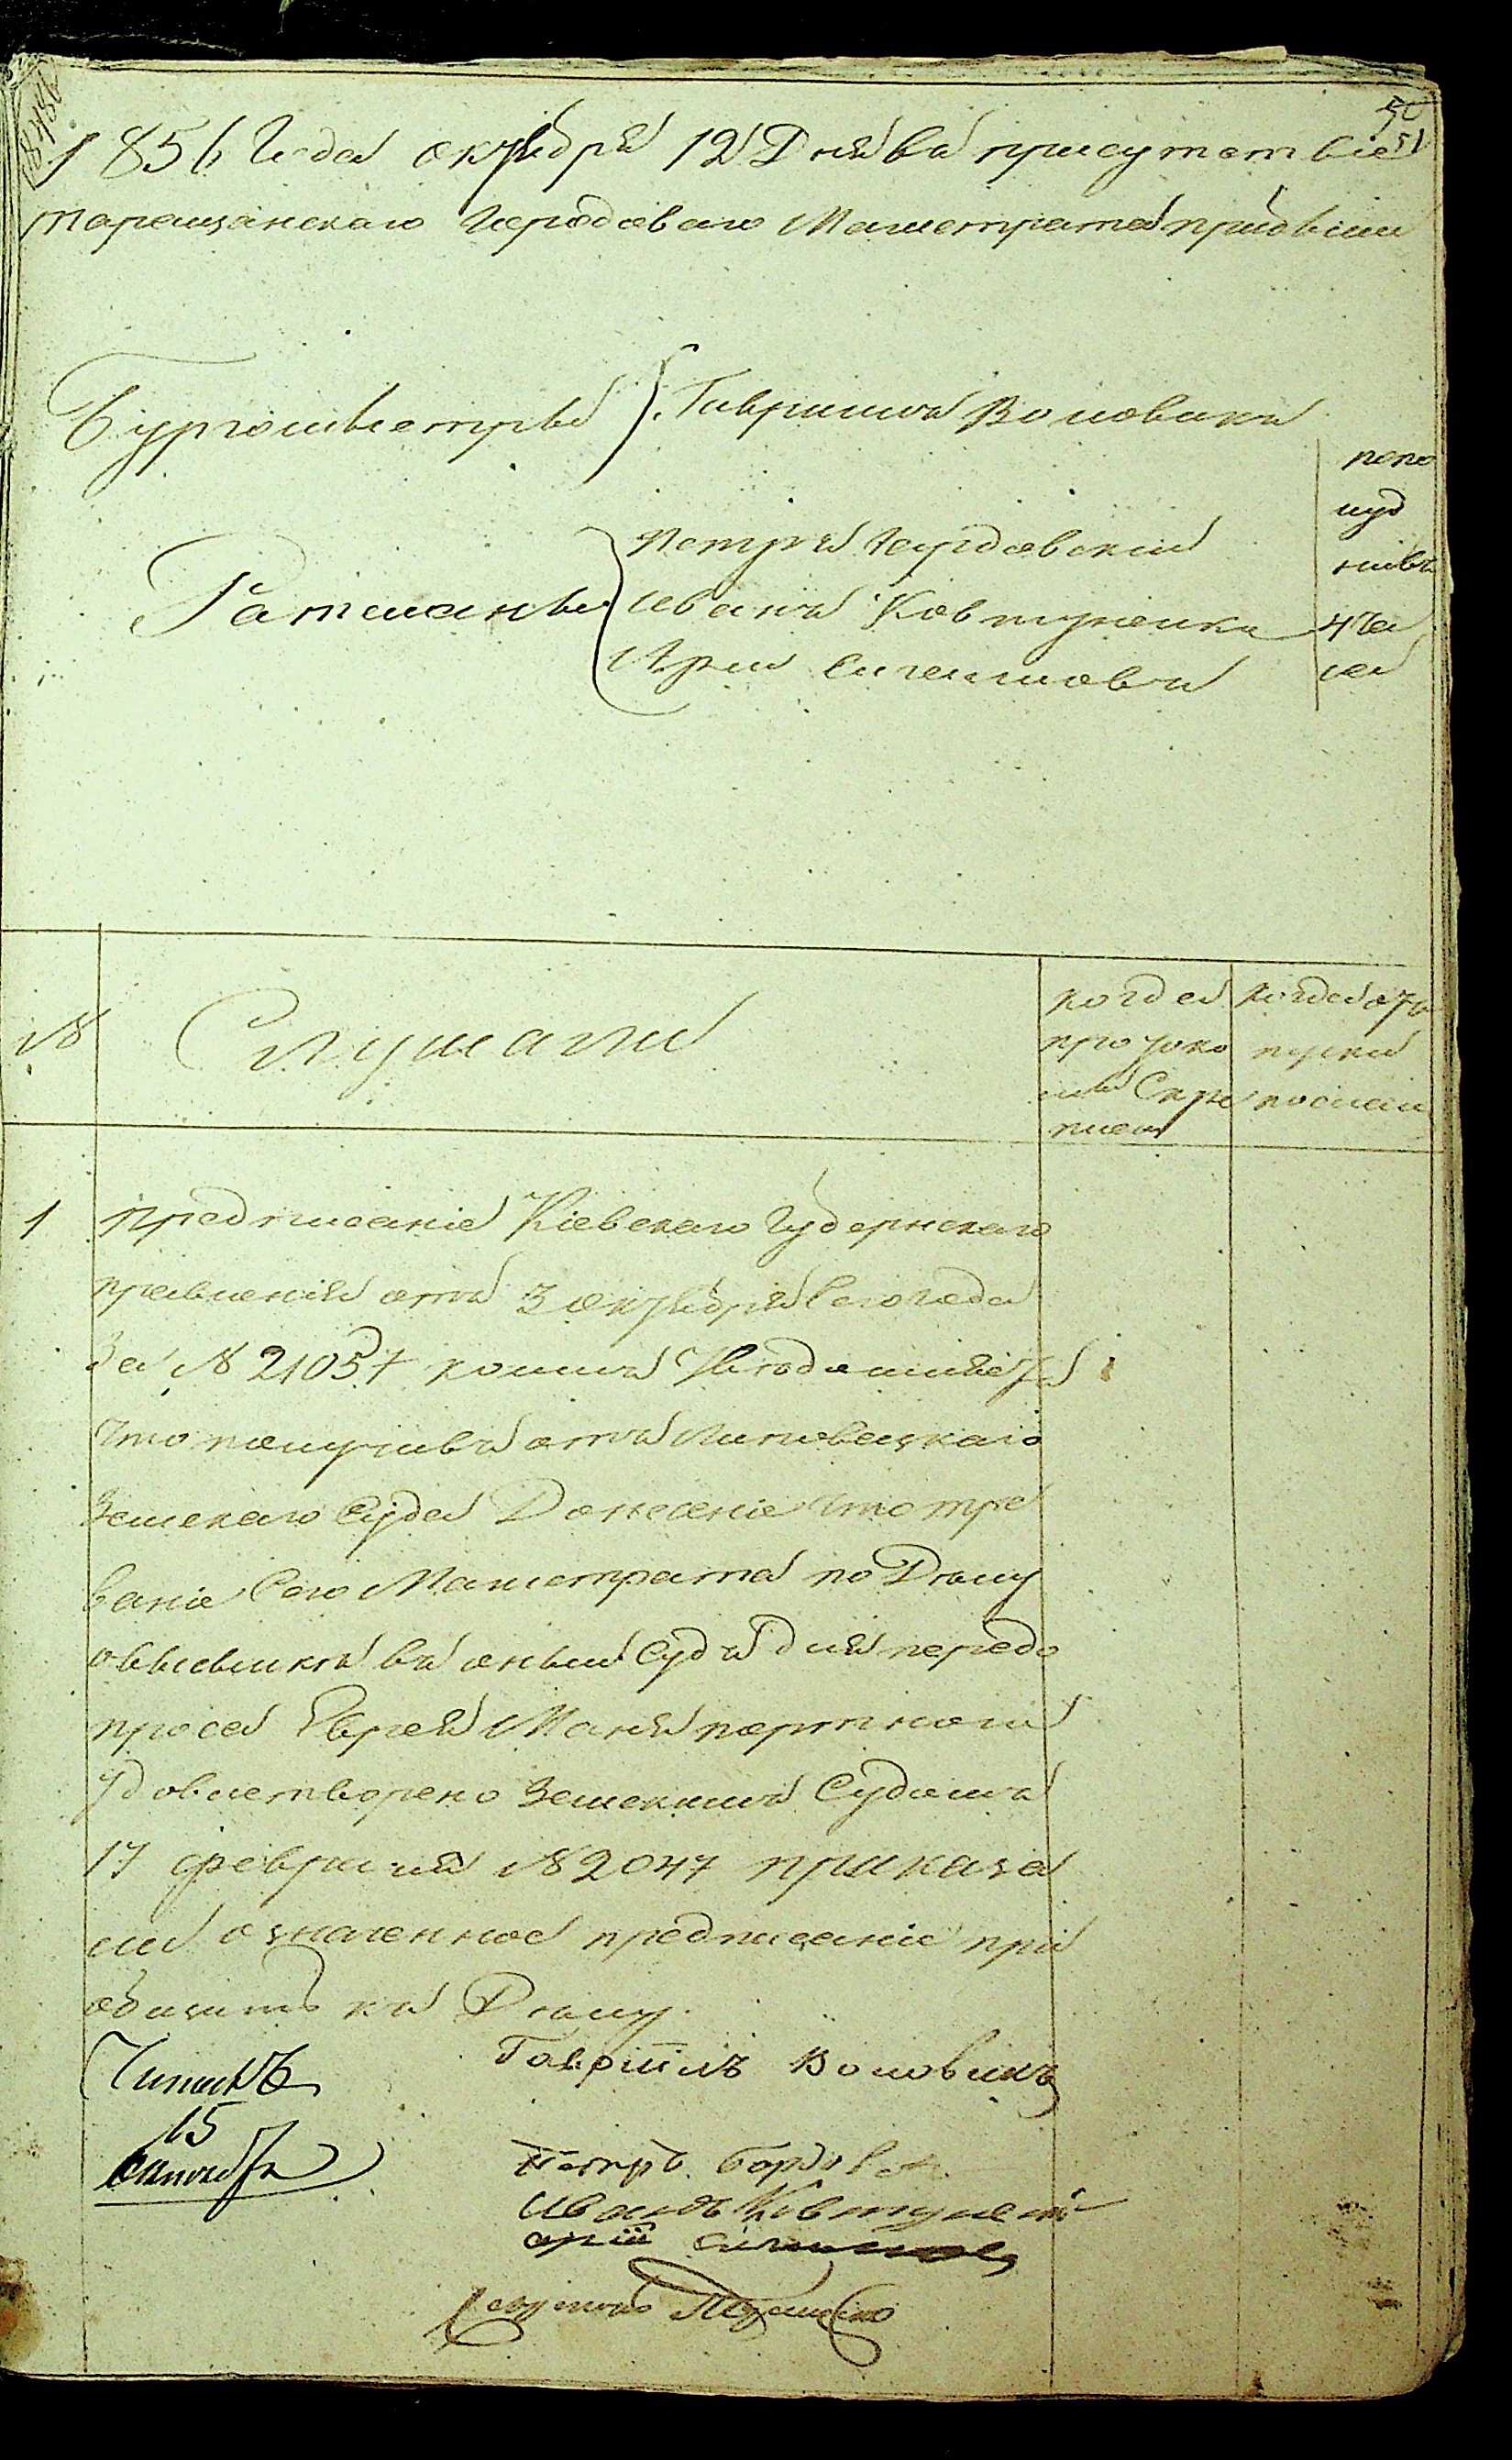 50
51
1856 Года октября 12 Дня въ присутствіе
таращанскаго Городоваго Магистрата прибыли
Бургомистръ Гавриилъ Воловикъ
Ратманы
Петръ
Иванъ Ковтуненко
Арій
попо
луд
нивъ
4 ча
са
№
Слушали
когда
прото
колъ
Скре
пленъ
когда от
пуски
посланы
1
предписаніе Кіевскаго Губернскаго
правленія отъ 3 октября сего года
За № 21057 коимъ Уведомляетъ
Что получивъ отъ Липовецкаго
Земскаго Суда Донесеніе что тре
ваніе Сего Магистрата по Делу
о высылки въ оный Судъ для передо
проса Еврея Маня портного
Удовлетворено Земскимъ Судомъ
17 февраля № 2047 приказа
ли означенное предписаніе при
общить къ Делу.
Читалъ
15
октября
Гавріилъ Воловикъ
Петръ
Иванъ Ковтуненко
арій